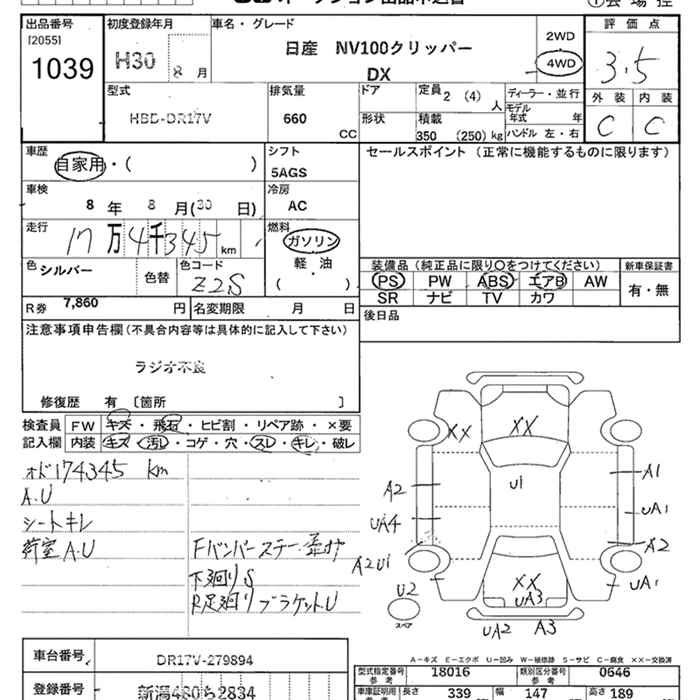 出品番号 初度登録年月 車名・グレード 評価点
[2055] 日産 NV100クリッパー 2WD
1039 H30 8月 DX 4WD 3.5
型式 排気量 ドア 定員 2 (4) 人 ディーラー・並行 外装 内装
HBD-DR17V 660 CC 形状 積載 350 (250) kg モデル年式 年 ハンドル 左・右 C C
車歴 シフト セールスポイント(正常に機能するものに限ります)
自家用・( ) 5AGS
車検 冷房
8年 8月(30日) AC
走行 燃料
17万4千345km ガソリン
色 シルバー 色替 色コード Z2S 軽・油 ( )
装備品(純正品に限り○をつけてください) 新車保証書
PS PW ABS エアB AW 有・無
SR ナビ TV カワ
R券 7,860円 名変期限 月 日 後日品
注意事項申告欄(不具合内容等は具体的に記入して下さい)
ラジオ不良
修復歴 有 [箇所 ]
検査員 FW キズ・飛石・ヒビ割・リペア跡・×要
記入欄 内装 キズ・汚レ・コゲ・穴・スレ・キレ・破レ
オド174345 km
A.U
シートキレ
荷室A.U
Fバンパーステー
下廻りS
R足廻りブラケットU
XX
XX
U1
A1
A2
UA1
UA4
A2
A2U1
XX
UA1
U2
UA3
スペア
UA2 A3
A-キズ E-エクボ U-凹み W-補修跡 S-サビ C-腐食 XX-交換済
車台番号 DR17V-279894
型式指定番号 参考 18016 類別区分番号 参考 0646
登録番号 新潟480ら2834
車庫証明用 参考 長さ 339 幅 147 高さ 189